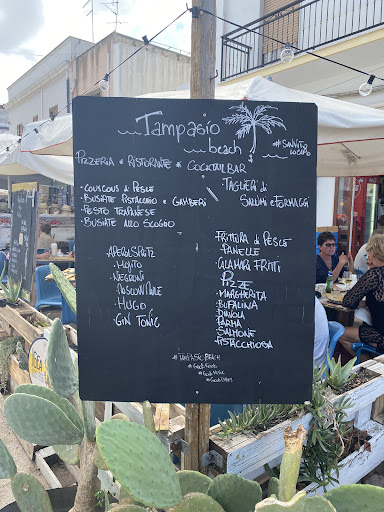 Tampasio
beach
#SANVITO
LO CAPO
PIZZERIA • RISTORANTE • COCKTAIL BAR
• COUSCOUS di PESCE
• BUSIATE PISTACCHIO e GAMBERI
• PESTO TRAPANESE
• BUSIATE ALLO SCOGLIO
• TAGLIERI di
SALUMI e FORMAGGI
APEROL SPRITZ
• MOJITO
• NEGRONI
• MOSCOW MULE
• HUGO
• GIN TONIC
FRITTURA di PESCE
PANELLE
CALAMARI FRITTI
PIZZE
• MARGHERITA
• BUFALINA
• PARMA
• SALMONE
• PISTACCHIOSA
#TAMPASIO BEACH
#GOOD FOOD
#GOOD MUSIC
#GOOD VIBES